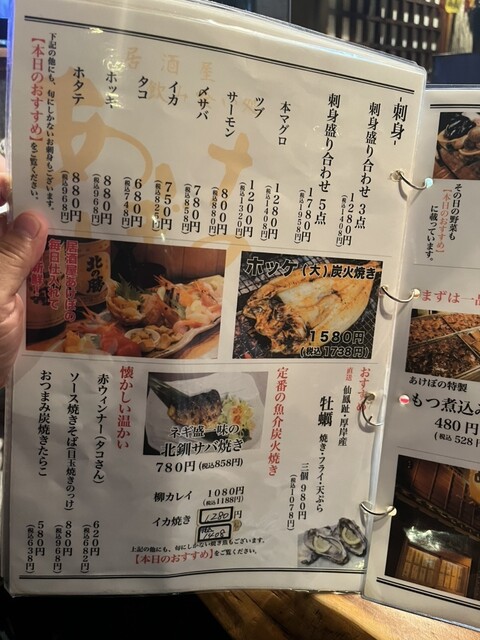 居酒屋
-刺身-
刺身盛り合わせ 3点
1280円
(税込1408円)
刺身盛り合わせ 5点
1780円
(税込1958円)
本マグロ
1280円
(税込1408円)
ツブ
1200円
(税込1320円)
サーモン
800円
〆サバ
780円
(税込858円)
イカ
750円
(税込825円)
タコ
680円
(税込748円)
ホッキ
880円
(税込968円)
ホタテ
880円
(税込968円)
下記の他にも、旬にしかないお刺身もございます。
【本日のおすすめ】をご覧ください。
ホッケ(大)炭火焼き
1580円
(税込1738円)
北の勝
おすすめ
直送 仙鳳趾・厚岸産
牡蠣 焼き・フライ・天ぷら
三個 980円
(税込1078円)
定番の魚介炭火焼き
ネギ盛一味の
北釧サバ焼き
780円(税込858円)
柳カレイ 1080円
(税込1188円)
イカ焼き 1280円
1408
上記の他にも、旬にしかない焼き魚もございます。
【本日のおすすめ】をご覧ください。
懐かしい温かい
赤ウィンナー(タコさん)
620円
(税込682円)
ソース焼きそば(目玉焼きのっけ)
880円
(税込968円)
おつまみ炭焼きたらこ
580円
(税込638円)
その日の野菜も
【本日のおすすめ】
に載っています。
まずは一品
あけぼの特製
もつ煮込み
480円
(税込528円